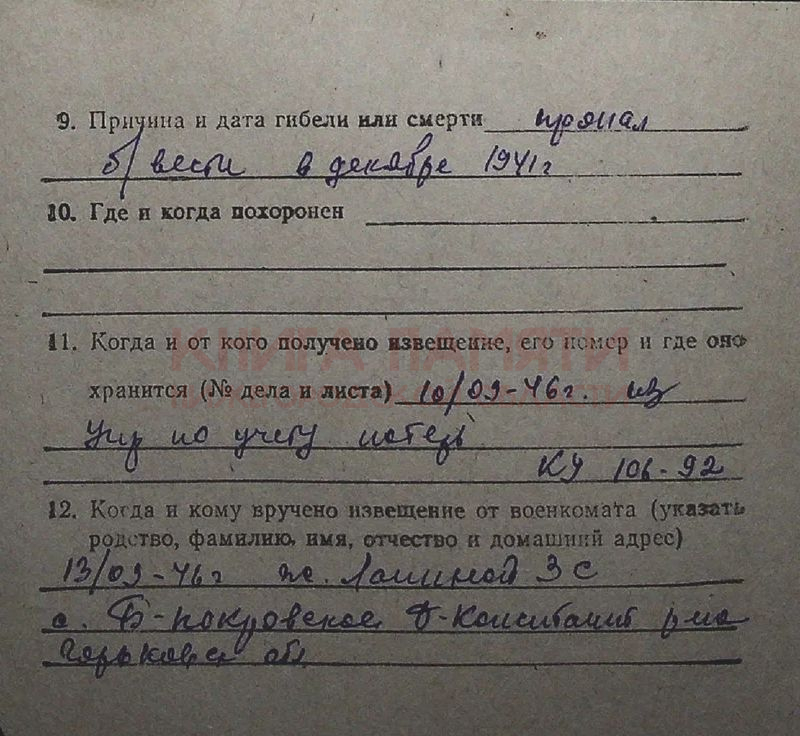 9. Причина и дата гибели или смерти пропал
б/вести в декабре 1941г
10. Где и когда похоронен
КНИГА ПАМЯТИ
11. Когда и от кого получено извещение, его номер и где оно
хранится (№ дела и листа) 10/09-46г. из
Упр по учету потерь
КУ 106-92
12. Когда и кому вручено извещение от военкомата (указать
родство, фамилию, имя, отчество и домашний адрес)
13/09-46г ж. З С
с. Б-покровское Д-Константин р-на
Горьковск обл